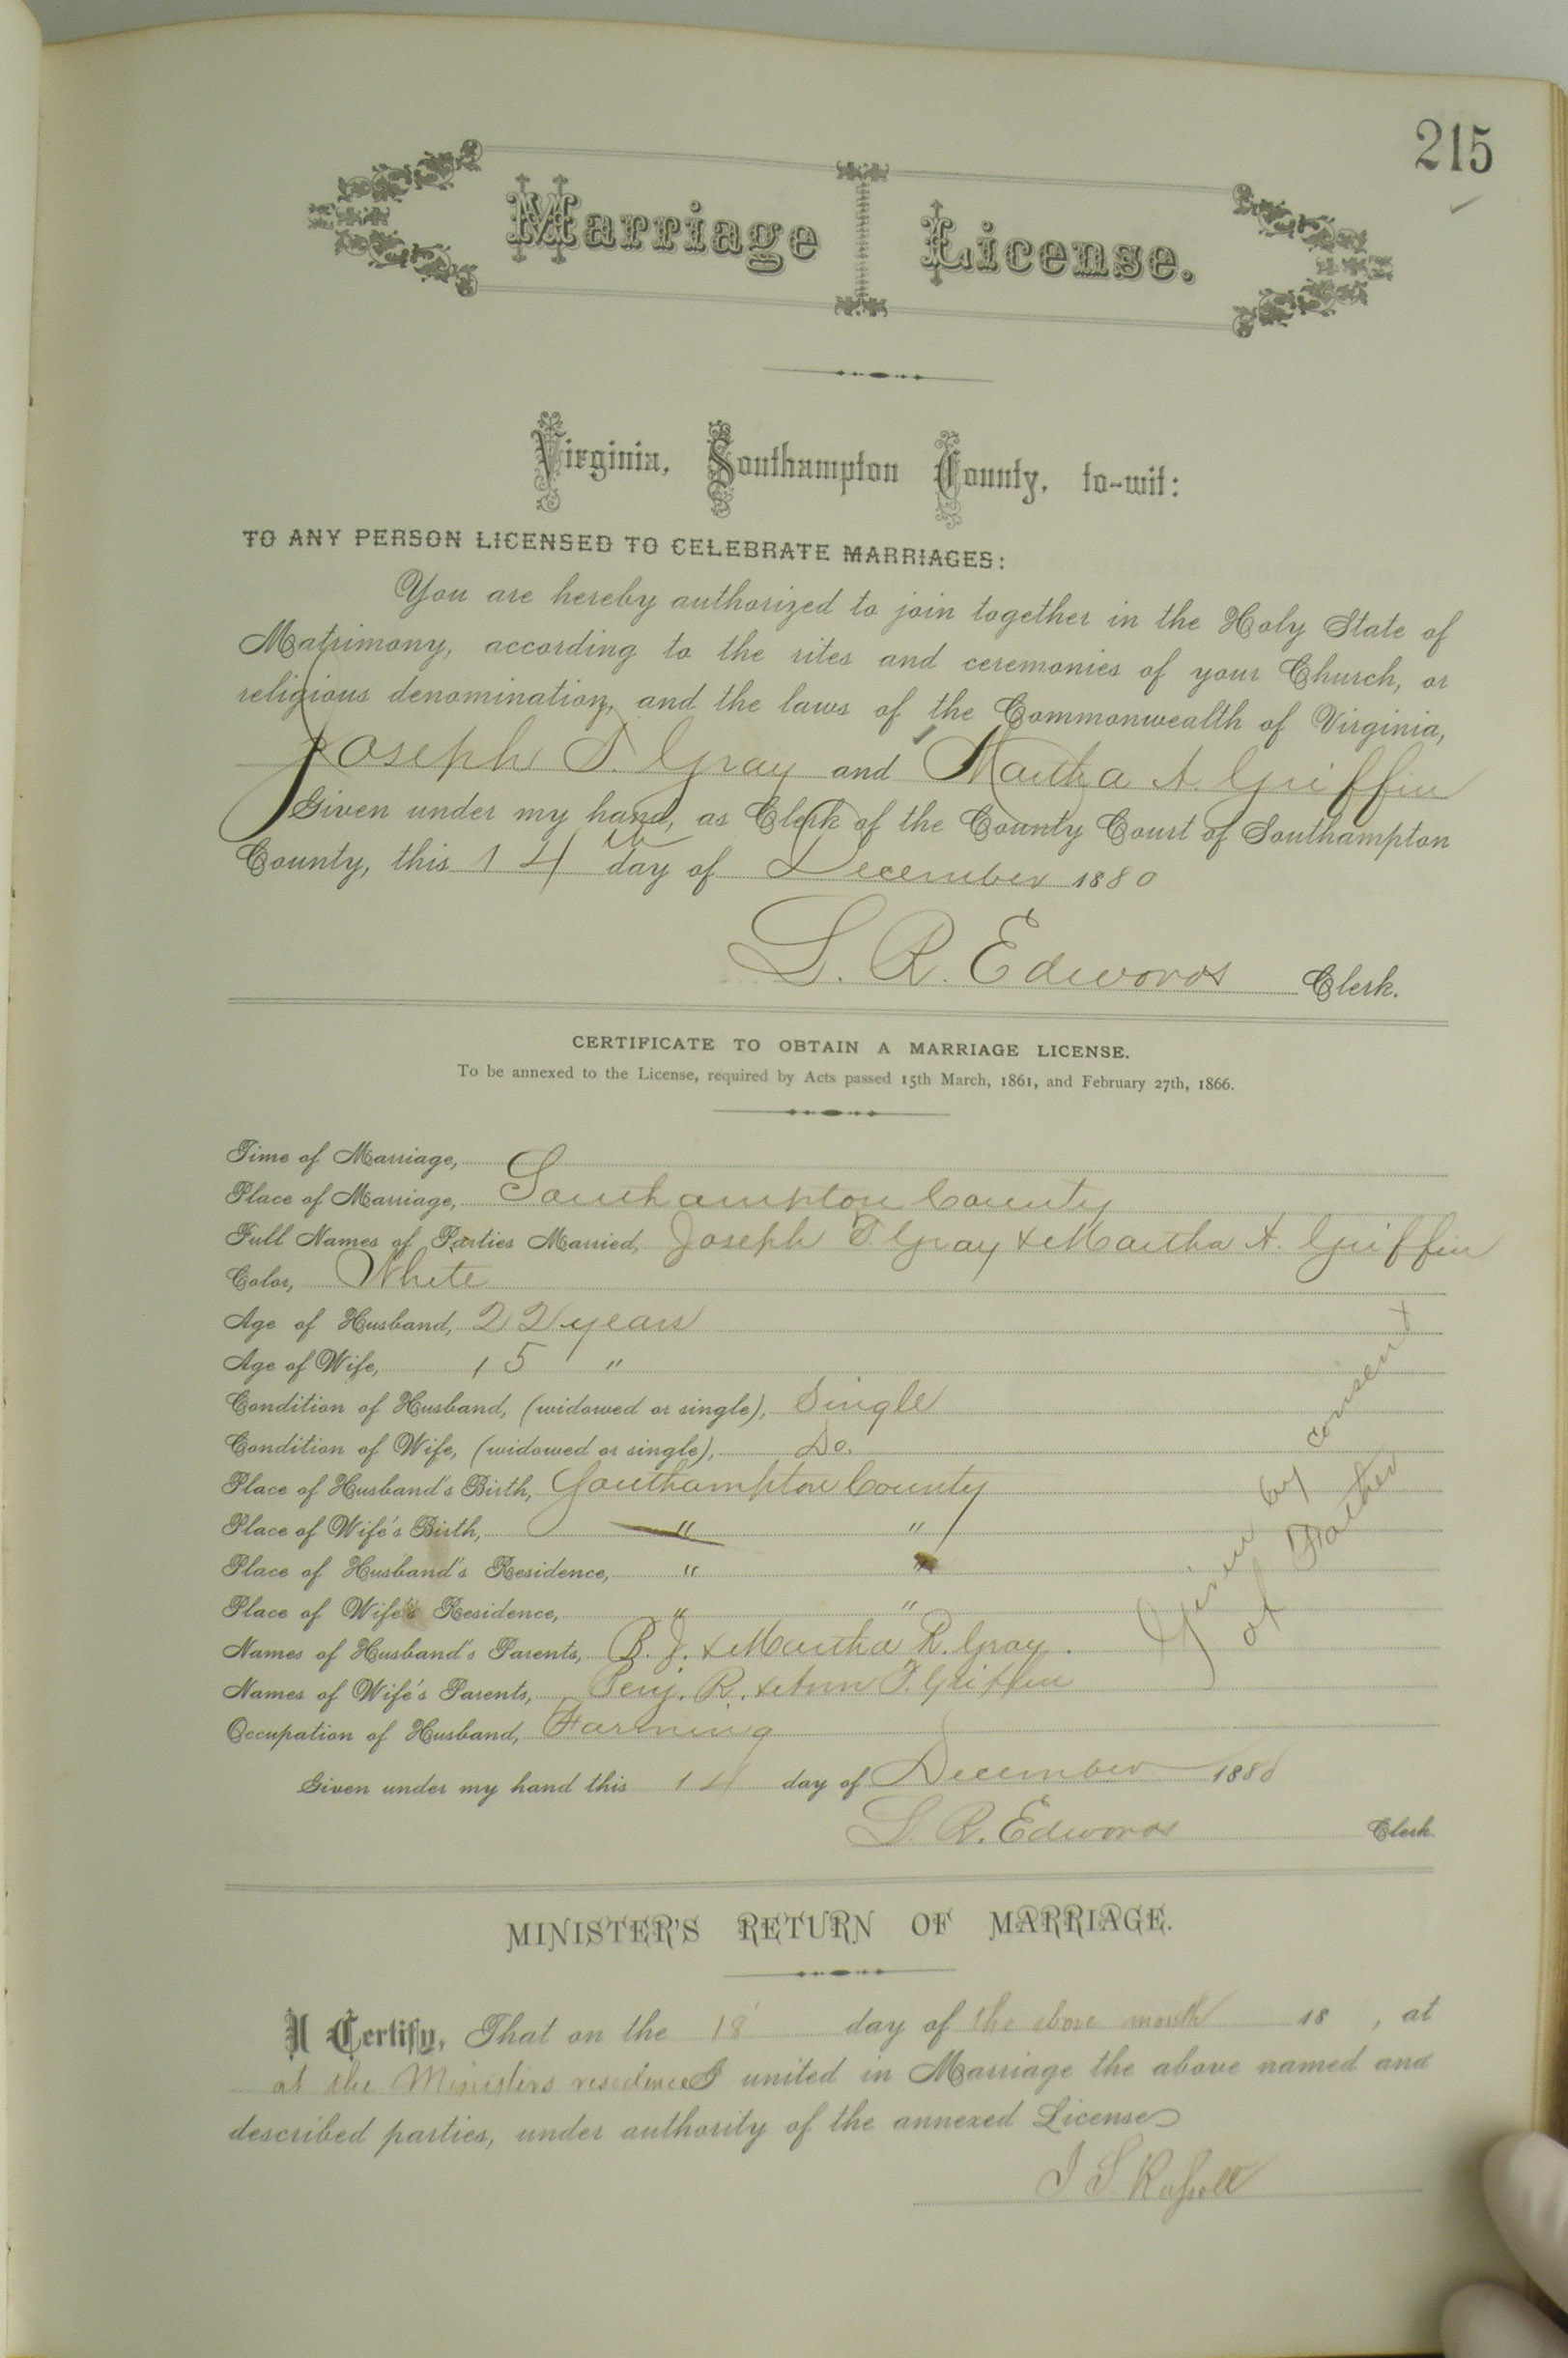 215
Marriage License.
Virginia, Southampton County, to-wit:
TO ANY PERSON LICENSED TO CELEBRATE MARRIAGES:
You are hereby authorized to join together in the Holy State of
Matrimony, according to the rites and ceremonies of your Church, or
religious denomination, and the laws of the Commonwealth of Virginia,
Joseph T. Gray and Martha A. Griffin
Given under my hand, as Clerk of the County Court of Southampton
County, this 14th day of December 1880
L. R. Edwards Clerk.
CERTIFICATE TO OBTAIN A MARRIAGE LICENSE.
To be annexed to the License, required by Acts passed 15th March, 1861, and February 27th, 1866.
Time of Marriage,
Place of Marriage, Southampton County
Full Names of Parties Married, Joseph T. Gray & Martha A. Griffin
Color, White
Age of Husband, 22 years
Age of Wife, 15 "
Condition of Husband, (widowed or single), Single
Condition of Wife, (widowed or single), Do.
Place of Husband's Birth, Southampton County
Place of Wife's Birth, " "
Place of Husband's Residence, " "
Place of Wife's Residence, " "
Names of Husband's Parents, B. J. & Martha R. Gray.
Names of Wife's Parents, Benj. R. & Ann F. Griffin
Occupation of Husband, Farming
Given by consent
of Father
Given under my hand this 14 day of December 1880
L. R. Edwards Clerk.
MINISTER'S RETURN OF MARRIAGE.
I Certify, That on the 18 day of the above month 18 , at
at the Ministers residence I united in Marriage the above named and
described parties, under authority of the annexed License
Russell